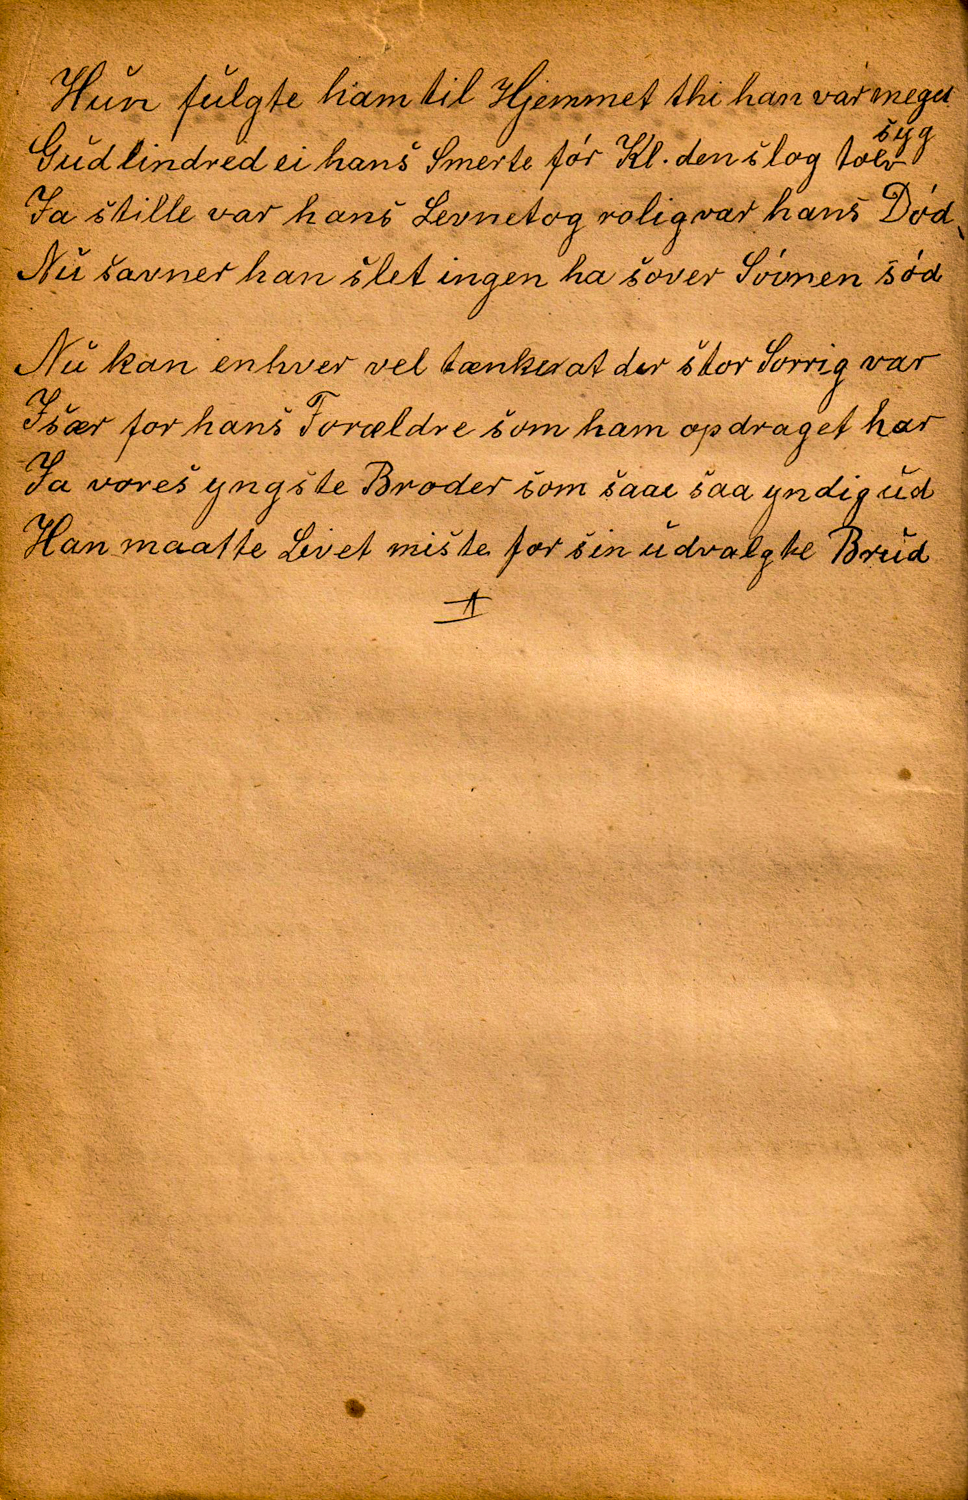 Hun fulgte ham til Hjemmet thi han var meget
syg
Gud lindred ei hans Smerte før Kl. den slog tolv
Ja stille var hans Levnet og rolig var hans Død,
Nu savner han slet ingen ha sover Søvnen sød
Nu kan enhver vel tænke at der stor Sorrig var
Især for hans Forældre som ham opdraget har
Ja vores yngste Broder som saae saa yndig ud
Han maatte Livet miste for sin udvalgte Brud